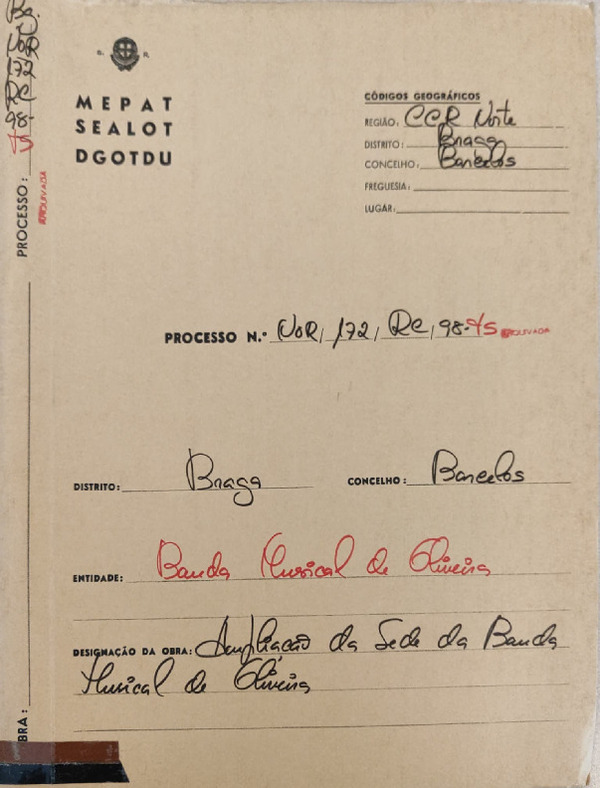 S. R.
MEPAT
SEALOT
DGOTDU
CÓDIGOS GEOGRÁFICOS
REGIÃO: CCR Norte
DISTRITO: Braga
CONCELHO: Barcelos
FREGUESIA:
LUGAR:
PROCESSO N.º NOR, 172, RC, 98-
DISTRITO: Braga CONCELHO: Barcelos
ENTIDADE: Banda Musical de Oliveira
DESIGNAÇÃO DA OBRA: Ampliação da Sede da Banda
Musical de Oliveira
PROCESSO:
BRA: